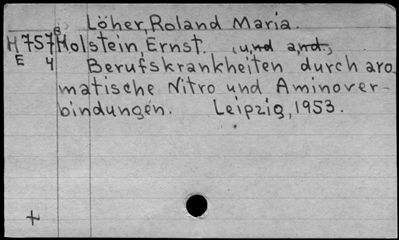 Löher, Roland Maria.
H 757 Holstein, Ernst. (und and.)
E 4 Berufskrankheiten durch aro
matische Nitro und Aminover-
bindungen. Leipzig, 1953.
+